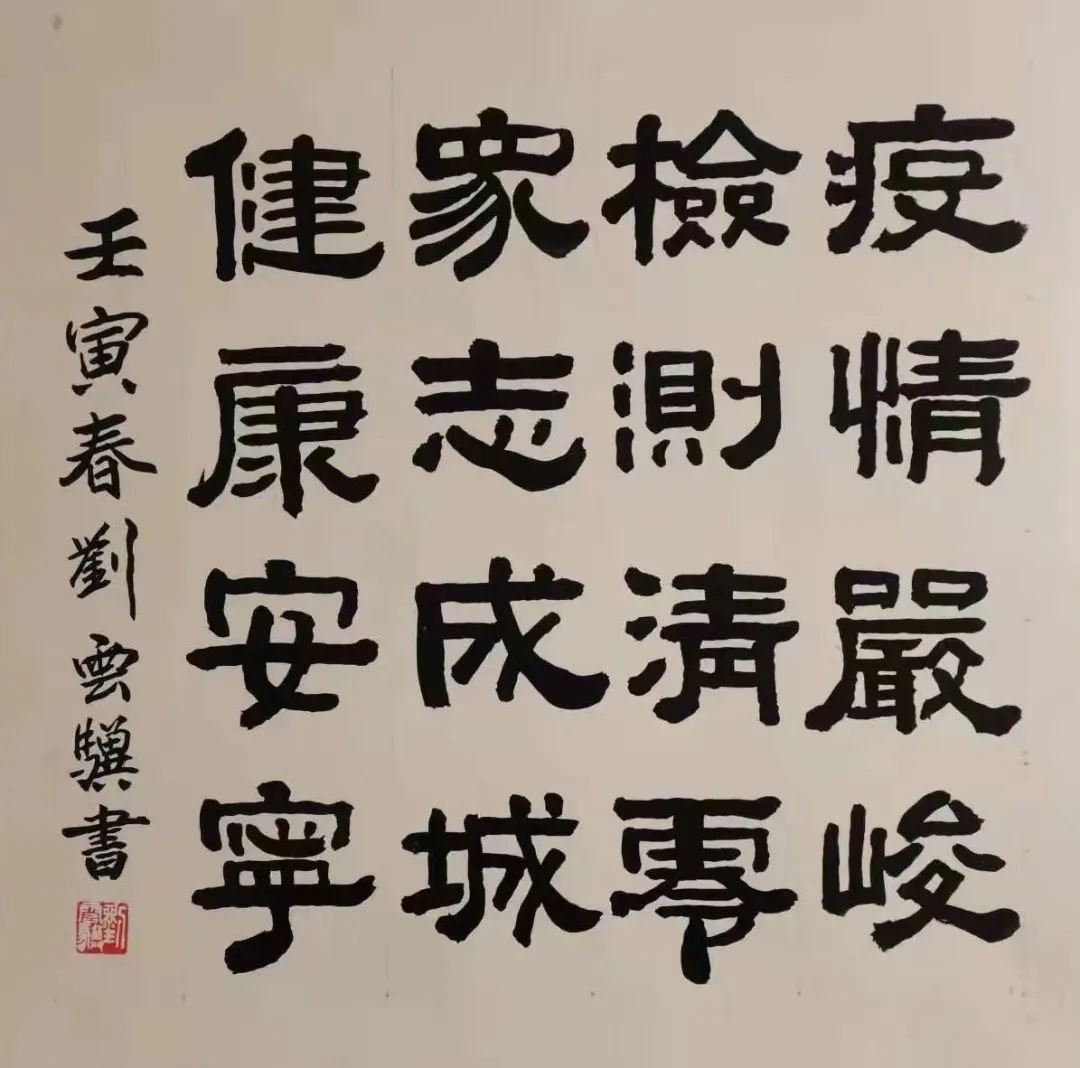 疫情嚴峻
檢測清零
眾志成城
健康安寧
壬寅春劉雲驥書